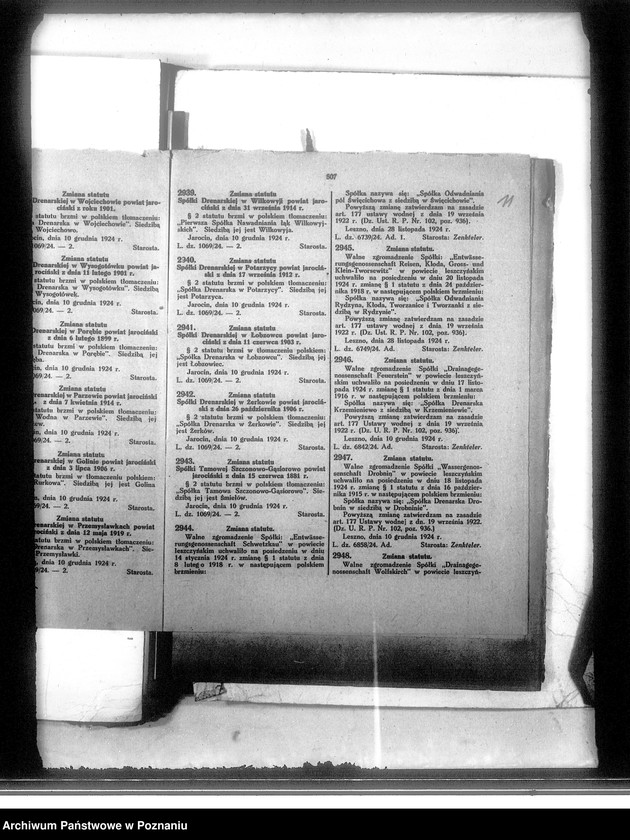 507
11
Zmiana statutu
Drenarskiej w Wojciechowie powiat jaro-
ciński z roku 1901.
statutu brzmi w polskiem tłomaczeniu:
Drenarska w Wojciechowie". Siedzibą
Wojciechowo.
cin, dnia 10 grudnia 1924 r.
1069/24. — 2. Starosta.
Zmiana statutu
Drenarskiej w Wysogotówku powiat ja-
rociński z dnia 11 lutego 1901 r.
statutu brzmi w polskiem tłomaczeniu:
Drenarska w Wysogotówku". Siedzibą
Wysogotówek.
cin, dnia 10 grudnia 1924 r.
069/24. — 2. Starosta.
Zmiana statutu
Drenarskiej w Porębie powiat jarociński
z dnia 6 lutego 1899 r.
statutu brzmi w polskiem tłomaczeniu:
Drenarska w Porębie". Siedzibą jej
cin, dnia 10 grudnia 1924 r.
069/24. — 2. Starosta.
Zmiana statutu
Drenarskiej w Parzewie powiat jarociński
z dnia 7 kwietnia 1914 r.
statutu brzmi w polskiem tłomaczeniu:
Wodna w Parzewie". Siedzibą jej
in, dnia 10 grudnia 1924 r.
69/24. — 2. Starosta.
Zmiana statutu
enarskiej w Golinie powiat jarociński
z dnia 3 lipca 1906 r.
statutu brzmi w tłomaczeniu polskiem:
Rurkowa". Siedzibą jej jest Golina
n, dnia 10 grudnia 1924 r.
9/24. — 2. Starosta.
Zmiana statutu
enarskiej w Przemysławkach powiat
z dnia 12 maja 1919 r.
tatutu brzmi w polskiem tłomaczeniu:
Drenarska w Przemysławkach". Sie-
Przemysławki.
dnia 10 grudnia 1924 r.
/24. — 2. Starosta.
2939. Zmiana statutu
Spółki Drenarskiej w Wilkowyji powiat jaro-
ciński z dnia 31 września 1914 r.
§ 2 statutu brzmi w polskiem tłomaczeniu:
"Pierwsza Spółka Nawadniania łąk Wilkowyj-
skich". Siedzibą jej jest Wilkowyja.
Jarocin, dnia 10 grudnia 1924 r.
L. dz. 1069/24. — 2. Starosta.
2940. Zmiana statutu
Spółki Drenarskiej w Potarzycy powiat jarociń-
ski z dnia 17 września 1912 r.
§ 2 statutu brzmi w polskiem tłomaczeniu:
„Spółka Drenarska w Potarzycy". Siedzibą jej
jest Potarzyca.
Jarocin, dnia 10 grudnia 1924 r.
L. dz. 1069/24. — 2. Starosta.
2941. Zmiana statutu
Spółki Drenarskiej w Łobzowcu powiat jaro-
ciński z dnia 11 czerwca 1903 r.
§ 2 statutu brzmi w polskiem tłomaczeniu:
„Spółka Drenarska w Łobzowcu". Siedzibą jej
jest Łobzowiec.
Jarocin, dnia 10 grudnia 1924 r.
L. dz. 1069/24. — 2. Starosta.
2942. Zmiana statutu
Spółki Drenarskiej w Żerkowie powiat jarociń-
ski z dnia 26 października 1906 r.
§ 2 statutu brzmi w polskiem tłomaczeniu:
„Spółka Drenarska w Żerkowie". Siedzibą jej
jest Żerków.
Jarocin, dnia 10 grudnia 1924 r.
L. dz. 1069/24. — 2. Starosta.
2943. Zmiana statutu
Spółki Tamowej Szczonowo-Gąsiorowo powiat
jarociński z dnia 15 czerwca 1881 r.
§ 2 statutu brzmi w polskiem tłomaczeniu:
„Spółka Tamowa Szczonowo-Gąsiorowo". Sie-
dzibą jej jest Śmiełów.
Jarocin, dnia 10 grudnia 1924 r.
L. dz. 1069/24. — 2. Starosta.
2944. Zmiana statutu.
Walne zgromadzenie Spółki: „Entwässe-
rungsgenossenschaft Schwetzkau" w powiecie
leszczyńskim uchwaliło na posiedzeniu w dniu
14 stycznia 1924 r. zmianę § 1 statutu z dnia
8 lutego 1918 r. w następującem polskiem
brzmieniu:
Spółka nazywa się: „Spółka Odwadniania
pól święciechowa z siedzibą w Święciechowie".
Powyższą zmianę zatwierdzam na zasadzie
art. 177 ustawy wodnej z dnia 19 września
1922 r. (Dz. Ust. R. P. Nr. 102, poz. 936).
Leszno, dnia 28 listopada 1924 r.
L. dz. 6739/24. Ad. I. Starosta: Zenkteler.
2945. Zmiana statutu.
Walne zgromadzenie Spółki: „Entwässe-
rungsgenossenschaft Reisen, Kłoda, Gross- und
Klein-Tworsewitz" w powiecie leszczyńskim
uchwaliło na posiedzeniu w dniu 20 listopada
1924 r. zmianę § 1 statutu z dnia 24 paździer-
nika 1918 r., w następującem polskiem brzmieniu:
Spółka nazywa się: „Spółka Odwadniania
Rydzyna, Kłoda, Tworzanice i Tworzanki z sie-
dzibą w Rydzynie".
Powyższą zmianę zatwierdzam na zasadzie
art. 177 ustawy wodnej z dn. 19 września
1922 r. (Dz. Ust. R. P. Nr. 102, poz. 936).
Leszno, dnia 28 listopada 1924 r.
L. dz. 6749/24. Ad. Starosta: Zenkteler.
2946. Zmiana statutu.
Walne zgromadzenie Spółki „Drainagege-
nossenschaft Feuerstein" w powiecie leszczyń-
skim uchwaliło na posiedzeniu w dniu 17 listo-
pada 1924 r. zmianę § 1 statutu z dnia 1 marca
1916 r. w następującem polskiem brzmieniu:
Spółka nazywa się: „Spółka Drenarska
Krzemieniewo z siedzibą w Krzemieniewie".
Powyższą zmianę zatwierdzam na zasadzie
art. 177 Ustawy wodnej z dnia 19 września
1922 r. (Dz. U. R. P. Nr. 102, poz. 936).
Leszno, dnia 10 grudnia 1924 r.
L. dz. 6842/24. Ad. Starosta: Zenkteler.
2947. Zmiana statutu.
Walne zgromadzenie Spółki „Wassergenos-
senschaft Drobnin" w powiecie leszczyńskim
uchwaliło na posiedzeniu w dniu 18 listopada
1924 r. zmianę § 1 statutu z dnia 16 paździer-
nika 1915 r. w następującem polskiem brzmieniu:
Spółka nazywa się: „Spółka Drenarska Dro-
bnin w siedzibą w Drobninie".
Powyższą zmianę zatwierdzam na zasadzie
art. 177 Ustawy wodnej z dn. 19 września 1922.
(Dz. U. R. P. Nr. 102, poz. 936.)
Leszno, dnia 10 grudnia 1924 r.
L. dz. 6858/24. Ad. Starosta: Zenkteler.
2948. Zmiana statutu.
Walne zgromadzenie Spółki „Drainagege-
nossenschaft Wolfskirch" w powiecie leszczyń-
Archiwum Państwowe w Poznaniu